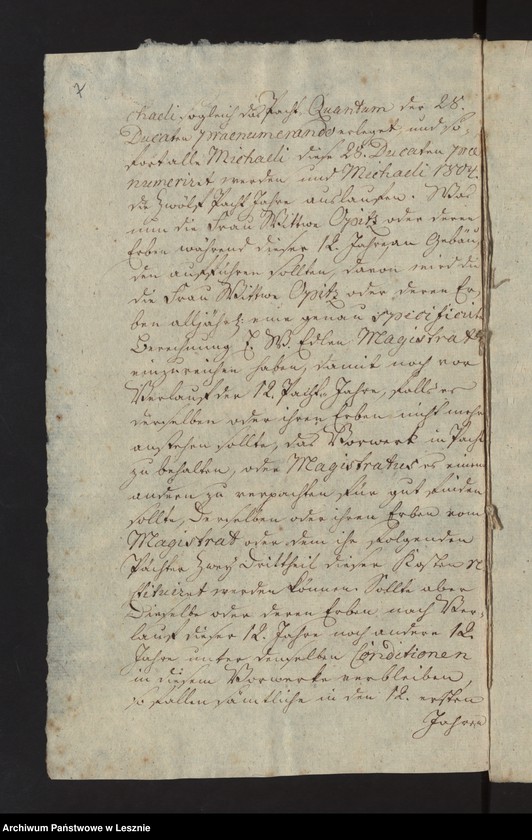 chaeli sogleich das Pacht Quantum der 28.
Ducaten praenumerando erleget, und so,
fort alle Michaeli diese 28. Ducaten prae
numeriret werden und Michaeli 1804.
die zwölf Pacht Jahre auslaufen. Was
nun die Frau Wittwe Opitz oder deren
Erben während dieser 12. Jahre an Gebäu,
den aufführen sollten, davon wird
die Frau Wittwe Opitz oder deren Er,
ben alljährl: eine genau specificirte
Berechnung E. W. Edlen Magistrat
einzureichen haben, damit nach vor
Verlauf der 12. Pacht-Jahre, falls es
derselben oder ihren Erben nicht mehr
anstehen sollte, das Vorwerk in Pacht
zu behalten, oder Magistratus es einem
andern zu verpachten für gut finden
sollte, Derselben oder ihren Erben vom
Magistrat oder dem ihr folgenden
Pächter zwey Drittheil dieser Kosten re
stituiret werden können. Sollte aber
Dieselbe oder deren Erben nach Ver,
lauf dieser 12. Jahre noch andere 12.
Jahre unter denselben Conditionen
in diesem Vorwerke verbleiben,
so fallen sämtliche in den 12. ersten
Jahren
Archiwum Państwowe w Lesznie